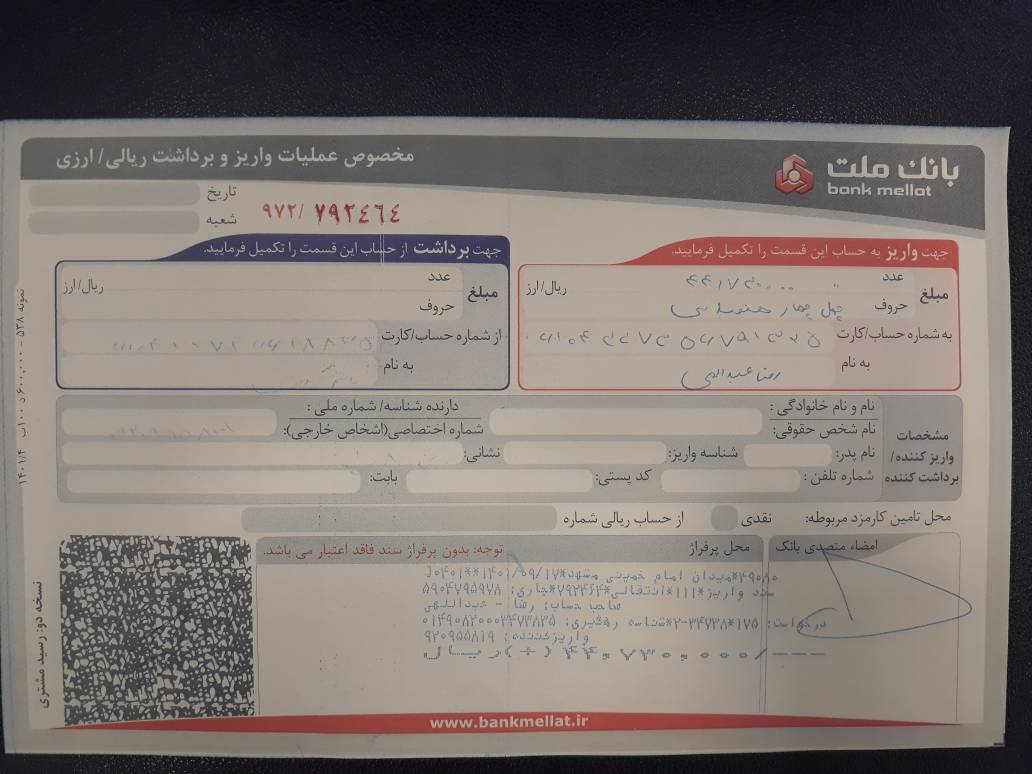 بانک ملت
bank mellat
مخصوص عملیات واریز و برداشت ریالی/ ارزی
تاریخ
شعبه
۹۷۲/ ۷۹۲۴۶۴
جهت واریز به حساب این قسمت را تکمیل فرمایید.
مبلغ
عدد
ریال/ارز
حروف
به شماره حساب/کارت
به نام
رضا عبدالهی
جهت برداشت از حساب این قسمت را تکمیل فرمایید.
مبلغ
عدد
ریال/ارز
حروف
از شماره حساب/کارت
به نام
مشخصات واریز کننده/ برداشت کننده
نام و نام خانوادگی :
دارنده شناسه/ شماره ملی :
نام شخص حقوقی:
شماره اختصاصی(اشخاص خارجی):
نام پدر:
شناسه واریز:
نشانی:
شماره تلفن :
کد پستی:
بابت:
محل تامین کارمزد مربوطه:
نقدی
از حساب ریالی شماره
امضاء متصدی بانک
محل پرفراژ
توجه: بدون پرفراژ سند فاقد اعتبار می باشد.
۴۹۰۸۰*میدان امام خمینی مشهد*۱۴۰۱/۰۹/۱۷**J۰۴۰۱
سند واریز*۱۱۱*انتقالی*۷۹۲۴۶۴*جاری: ۵۹۰۴۷۹۵۹۷۸
صاحب حساب: رضا - عبداللهی
درخواست: ۱۷۵*۳۴۷۳۸-۲*شناسه رهگیری: ۰۱۴۹۰۸۲۰۰۰۳۴۷۳۸۳۵
واریزکننده: ۹۲۰۹۵۵۸۱۹
---/۴۴۰,۷۳۰,۰۰۰ (+) ریال
نسخه دو: رسید مشتری
www.bankmellat.ir